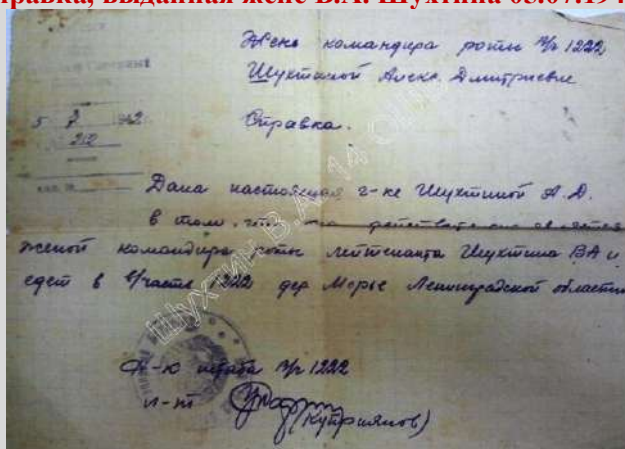 равка, выданная жене В.А. Шухтина 05.07.194
Жене командира роты п/п 1222
Шухтиной Алекс. Дмитриевне
5 7 42
212
Справка.
Дана настоящая г-ке Шухтиной А.Д.
в том, что она действительно является
женой командира роты лейтенанта Шухтина ВА и
едет в в/часть 1222 дер Морье Ленинградской области
штаба п/п 1222
(Куприянов)